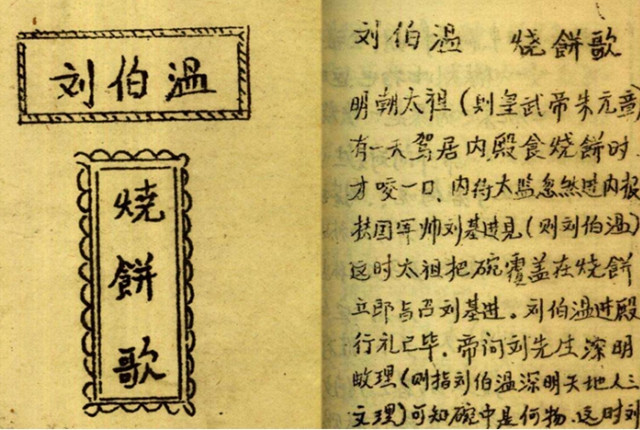 刘伯温
烧餅歌
刘伯温 烧餅歌
明朝太祖(则皇武帝朱元章)
有一天驾居内殿食烧餅时,
才咬一口,内待太监忽然进内报
国军帅刘基进見(则刘伯温)
这时太祖把碗覆盖在烧餅
立即召刘基进。刘伯温进殿
行礼已毕,帝问刘先生深明
理(则指刘伯温深明天地人三
文理)可知碗中是何物。这时刘